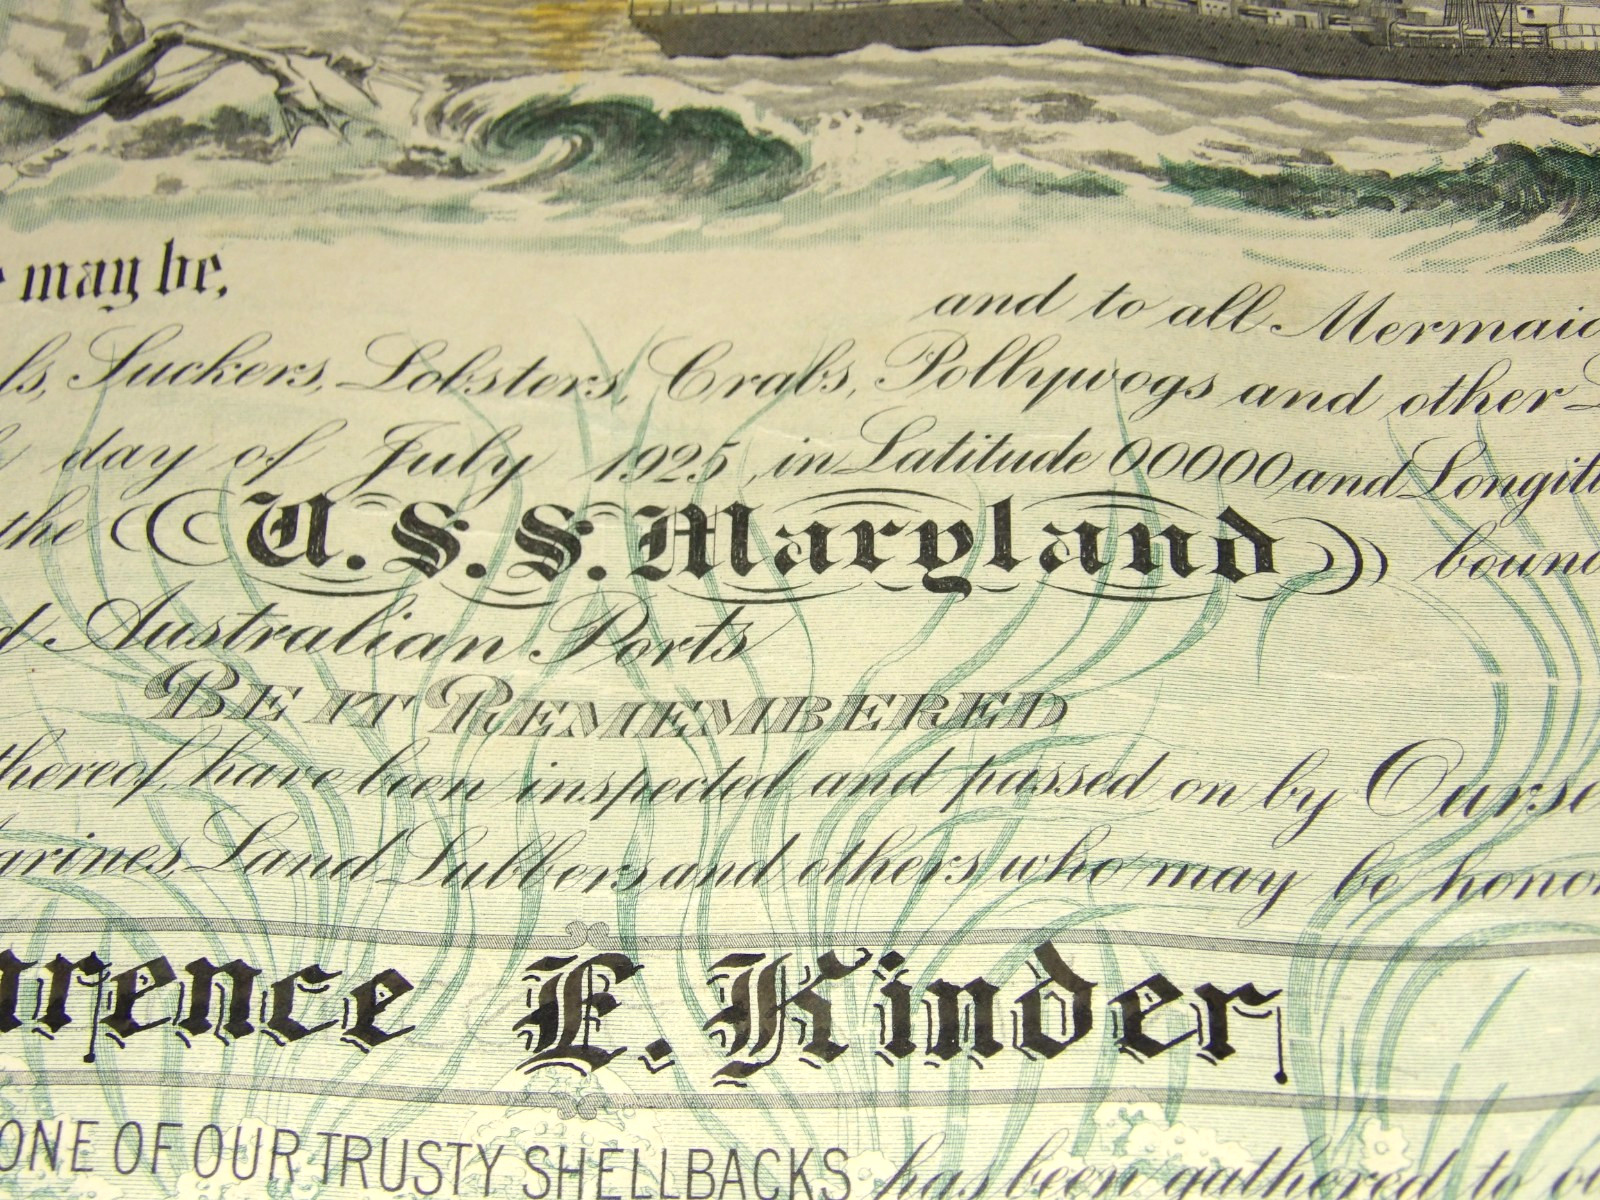 may be,
and to all Mermaid
ls, Suckers, Lobsters, Crabs, Pollywogs and other
day of July 1925, in Latitude 00000 and Longit
the U.S.S. Maryland boun
d Australian Ports
BE IT REMEMBERED
thereof, have been inspected and passed on by Ourse
arines, Land Lubbers and others who may be honor
arence E. Kinder
ONE OF OUR TRUSTY SHELLBACKS has been gathered to ou